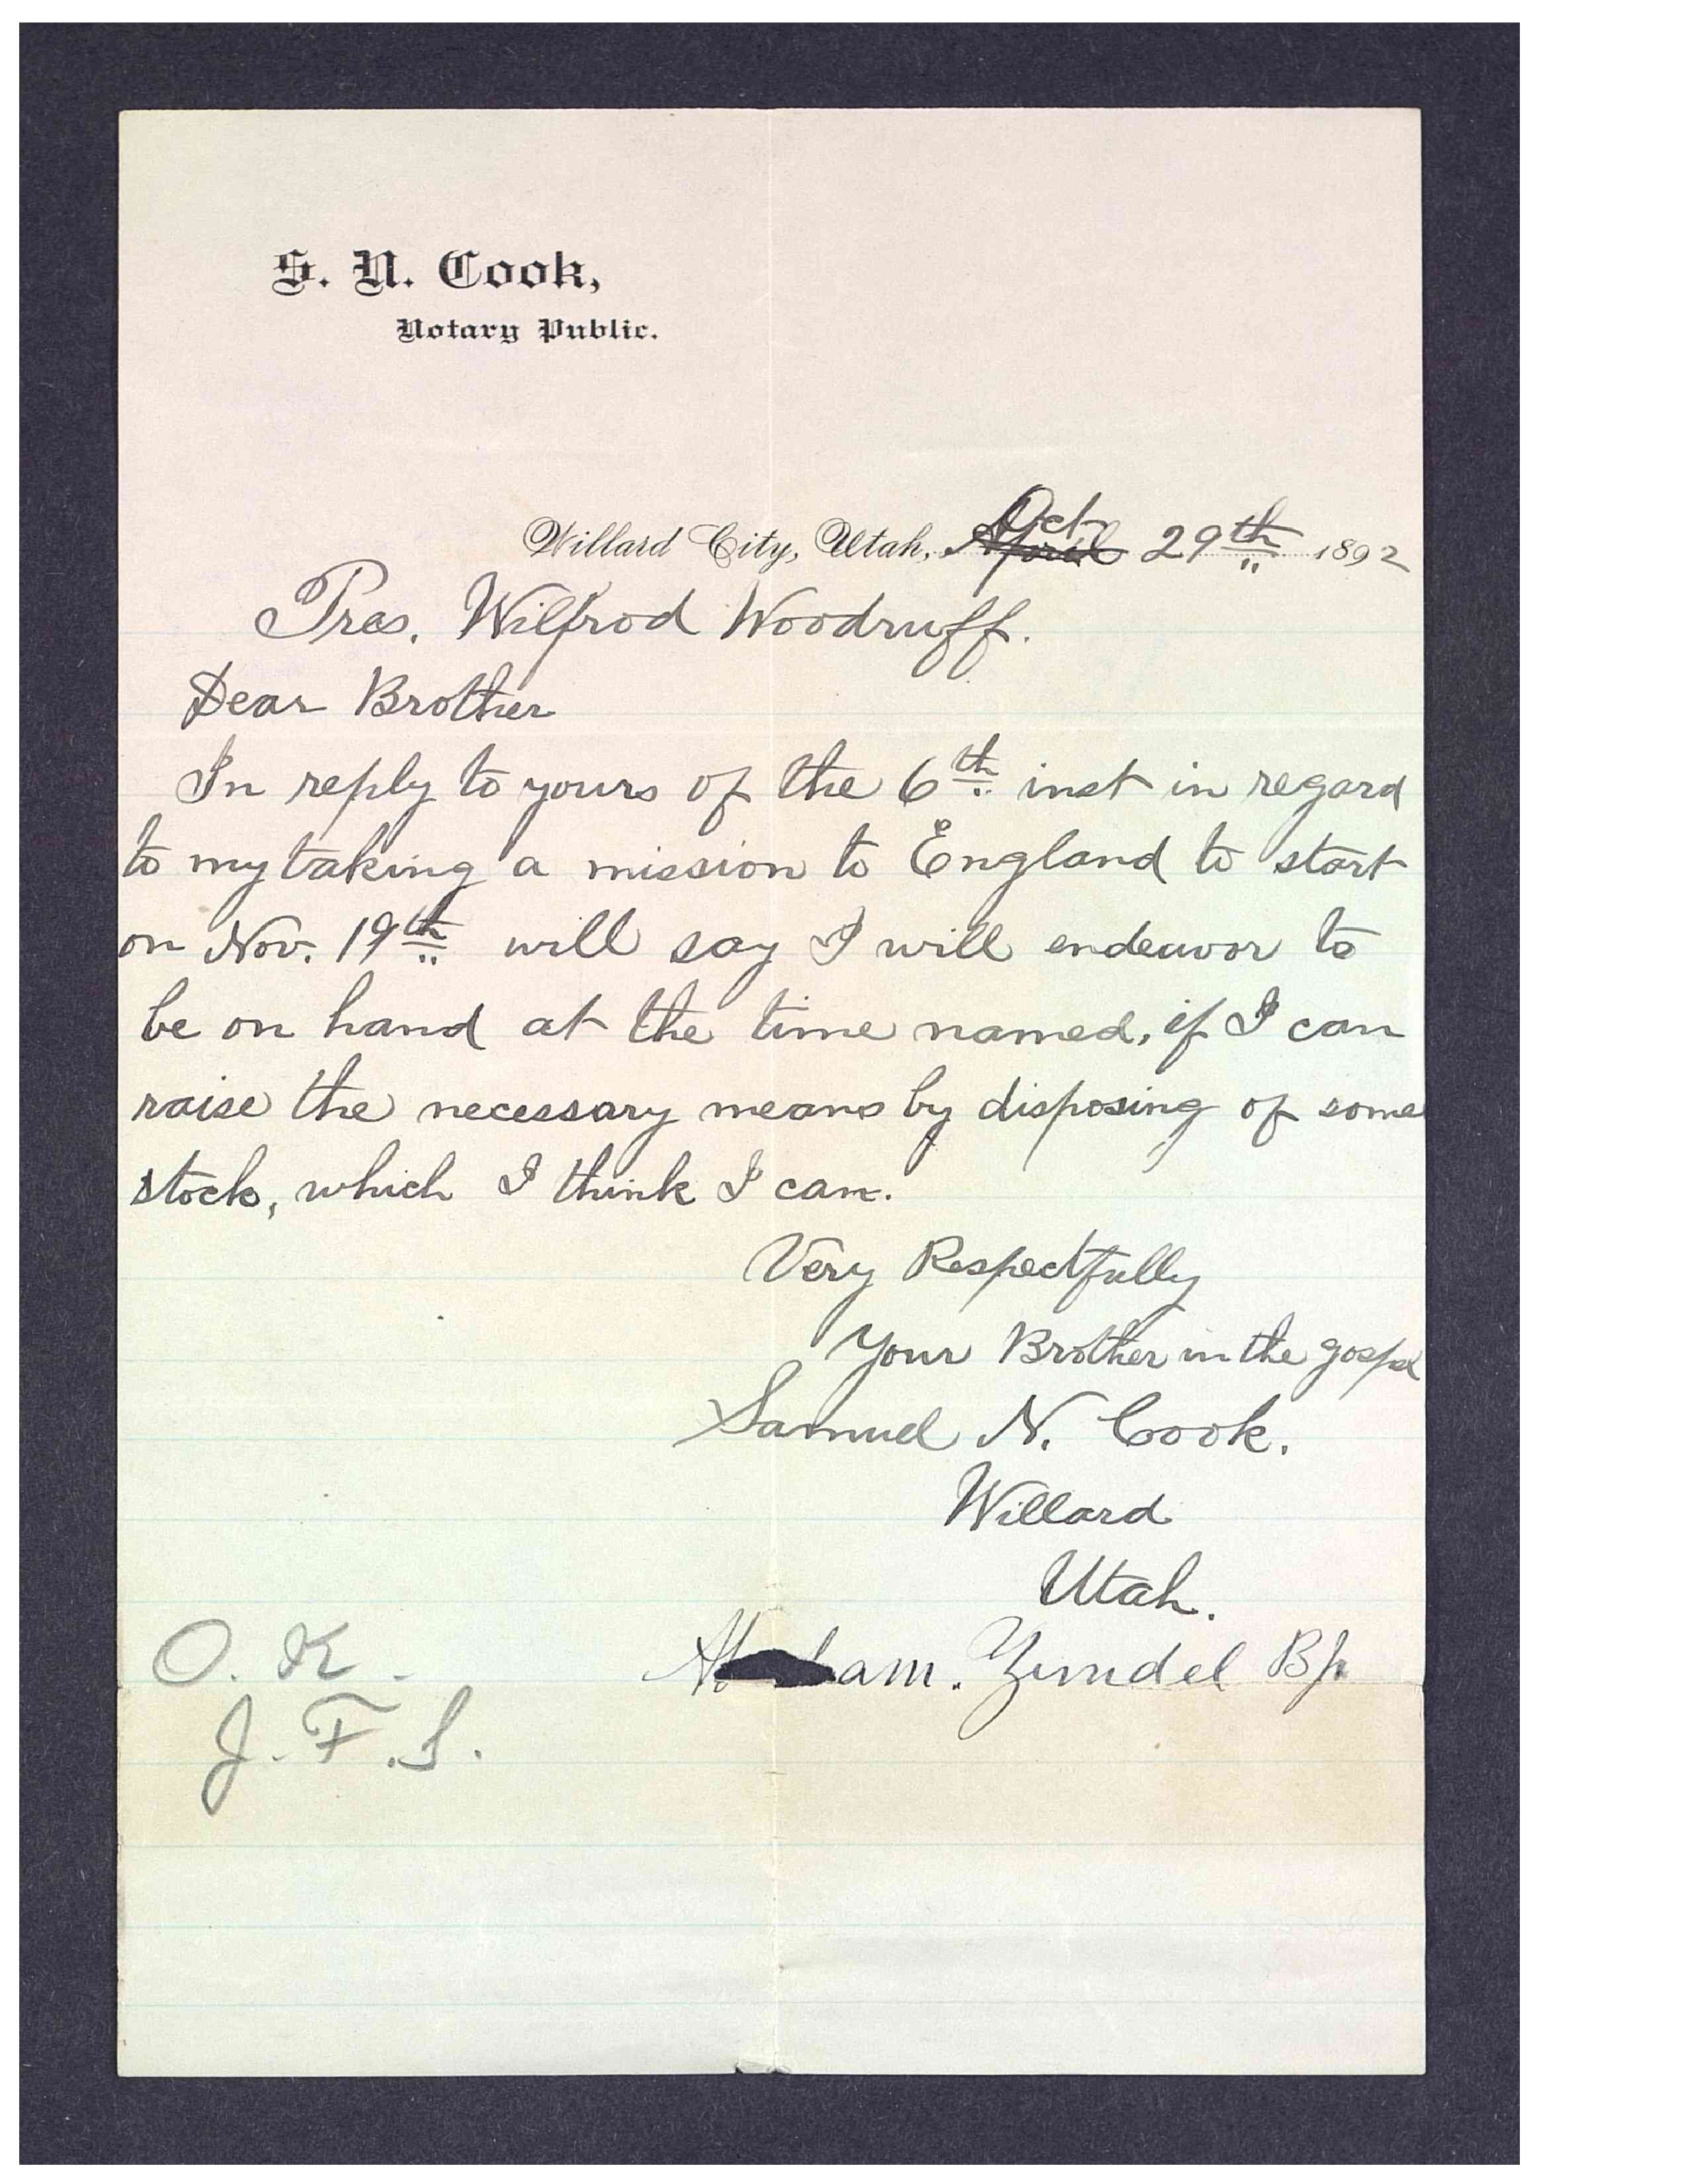 S. N. Cook,
Notary Public.
Oct
Willard City, Utah, April 29th 1892
Pres. Wilfrod Woodruff.
Dear Brother
In reply to yours of the 6th inst in regard
to my taking a mission to England to start
on Nov. 19th will say I will endeavor to
be on hand at the time named, if I can
raise the necessary means by disposing of some
stock, which I think I can.
Very Respectfully
Your Brother in the gospel
Samuel N. Cook.
Willard
Utah.
O. K. 
am. Zundel Bp
J. F. S.